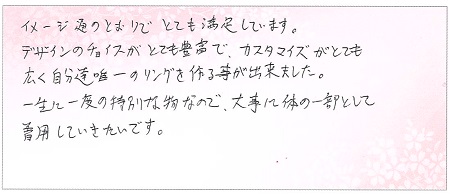 イメージ通のとおりでとても満足しています。
デザインのチョイスがとても豊富で、カスタマイズがとても
広く自分達唯一のリングを作る事が出来ました。
一生に一度の特別な物なので、大事に体の一部として
着用していきたいです。